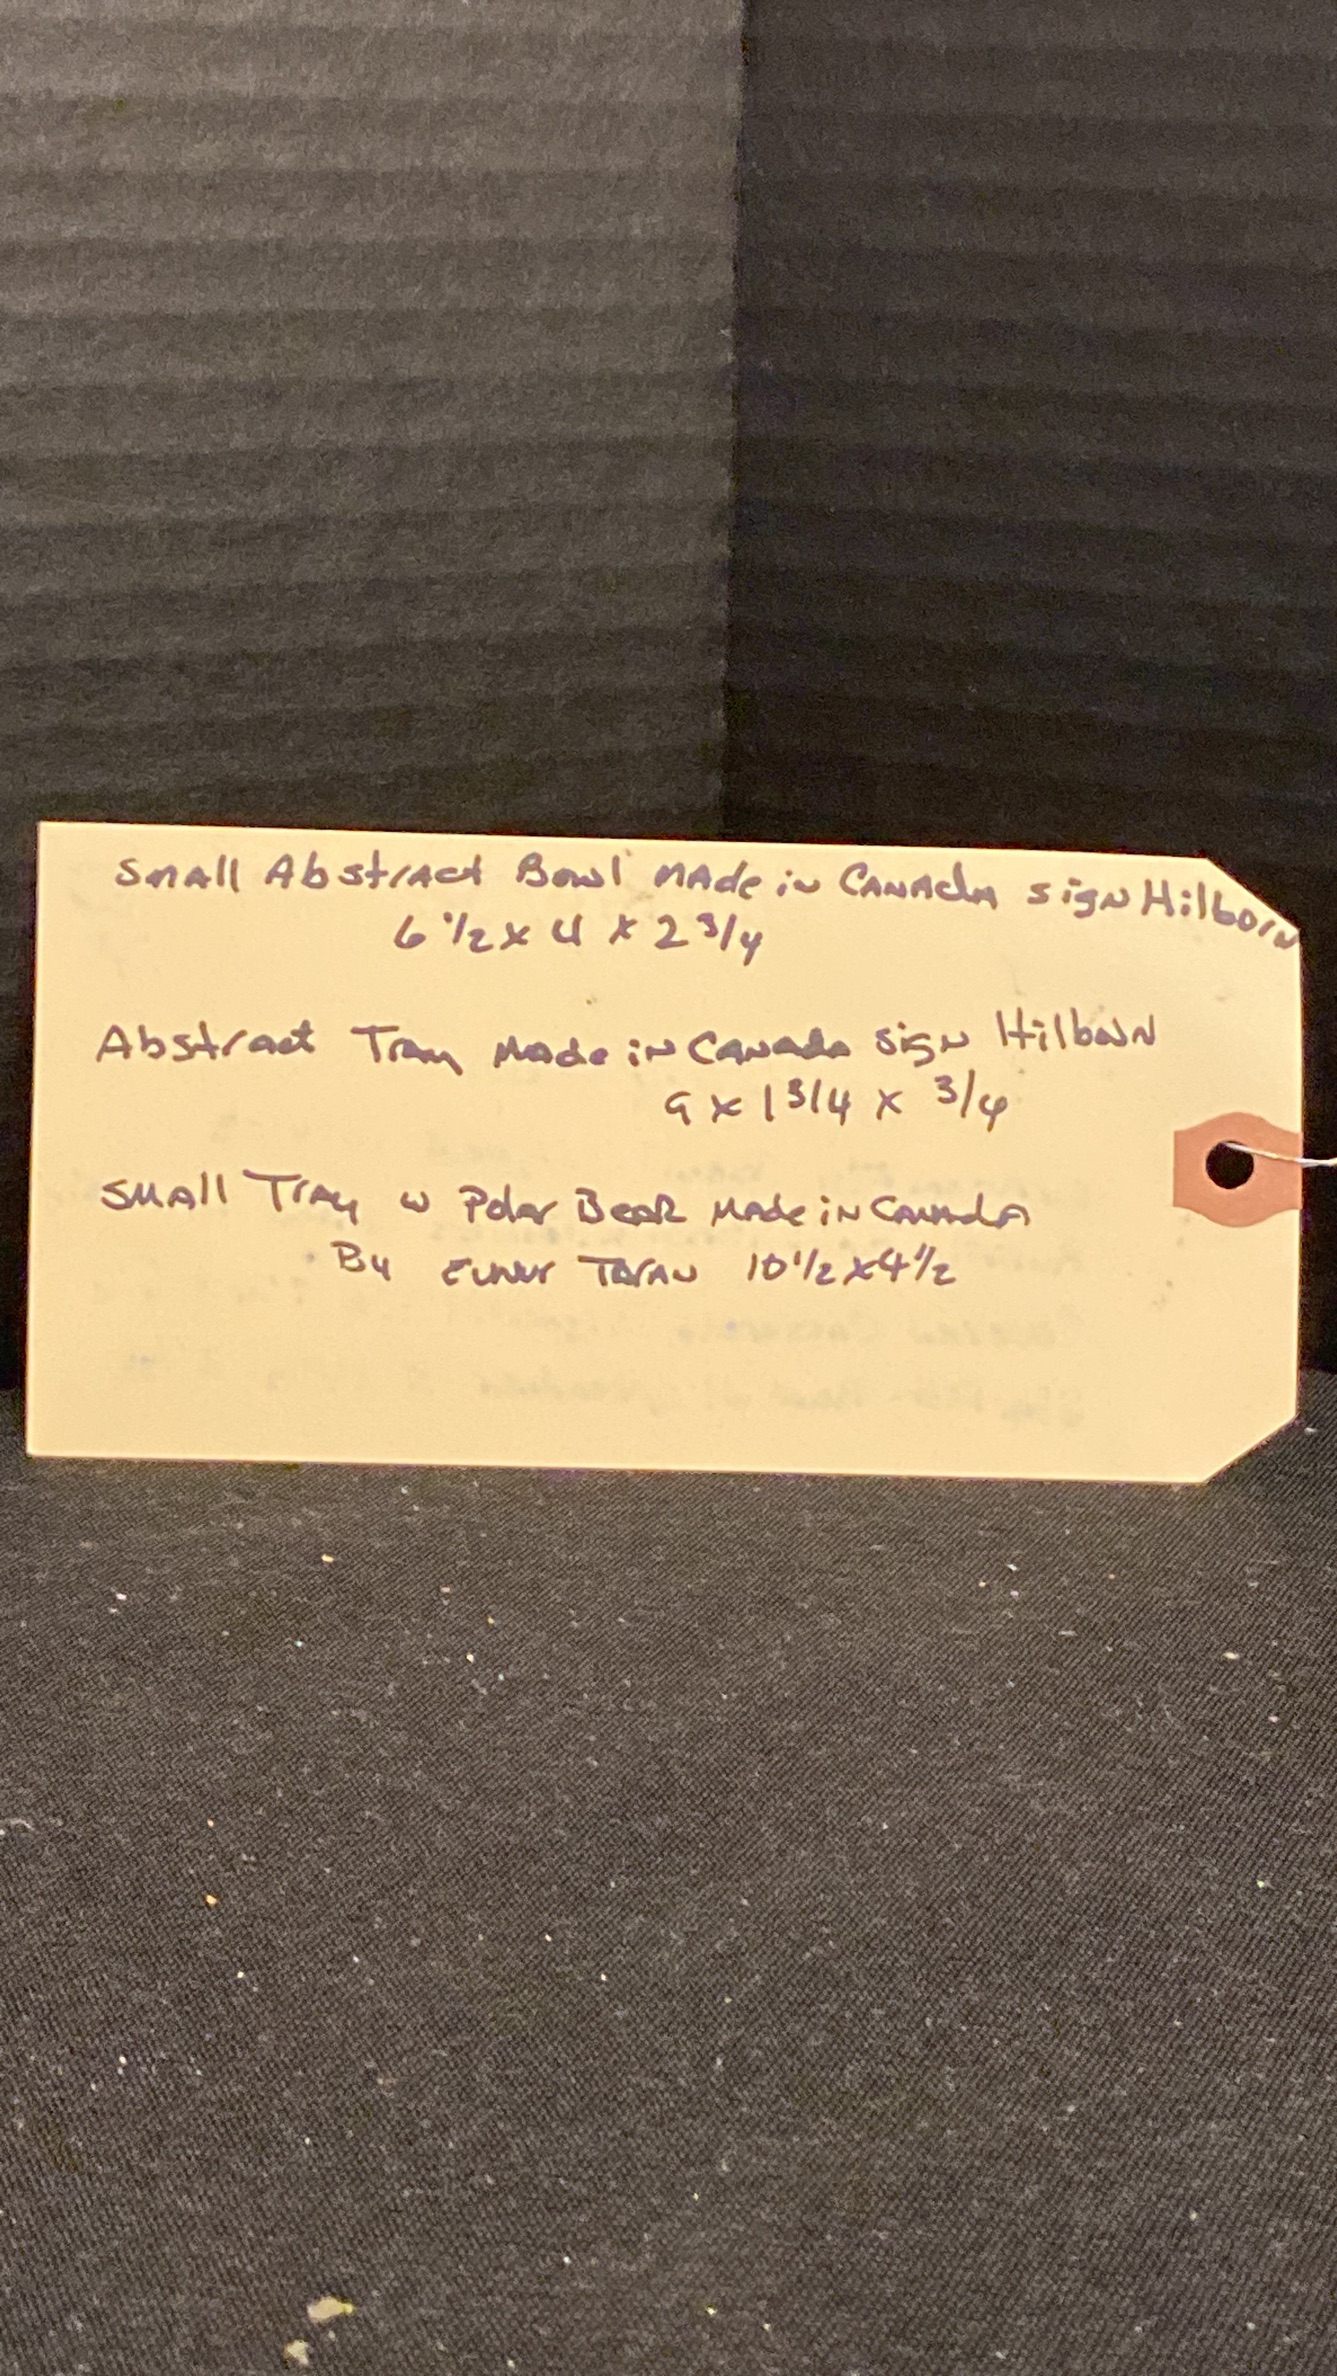 Small Abstract Bowl Made in Canada sign Hilborn
6 1/2 x 4 x 2 3/4
Abstract Tray Made in Canada sign Hilborn
9 x 1 3/4 x 3/4
Small Tray w Polar Bear Made in Canada
By 10 1/2 x 4 1/2